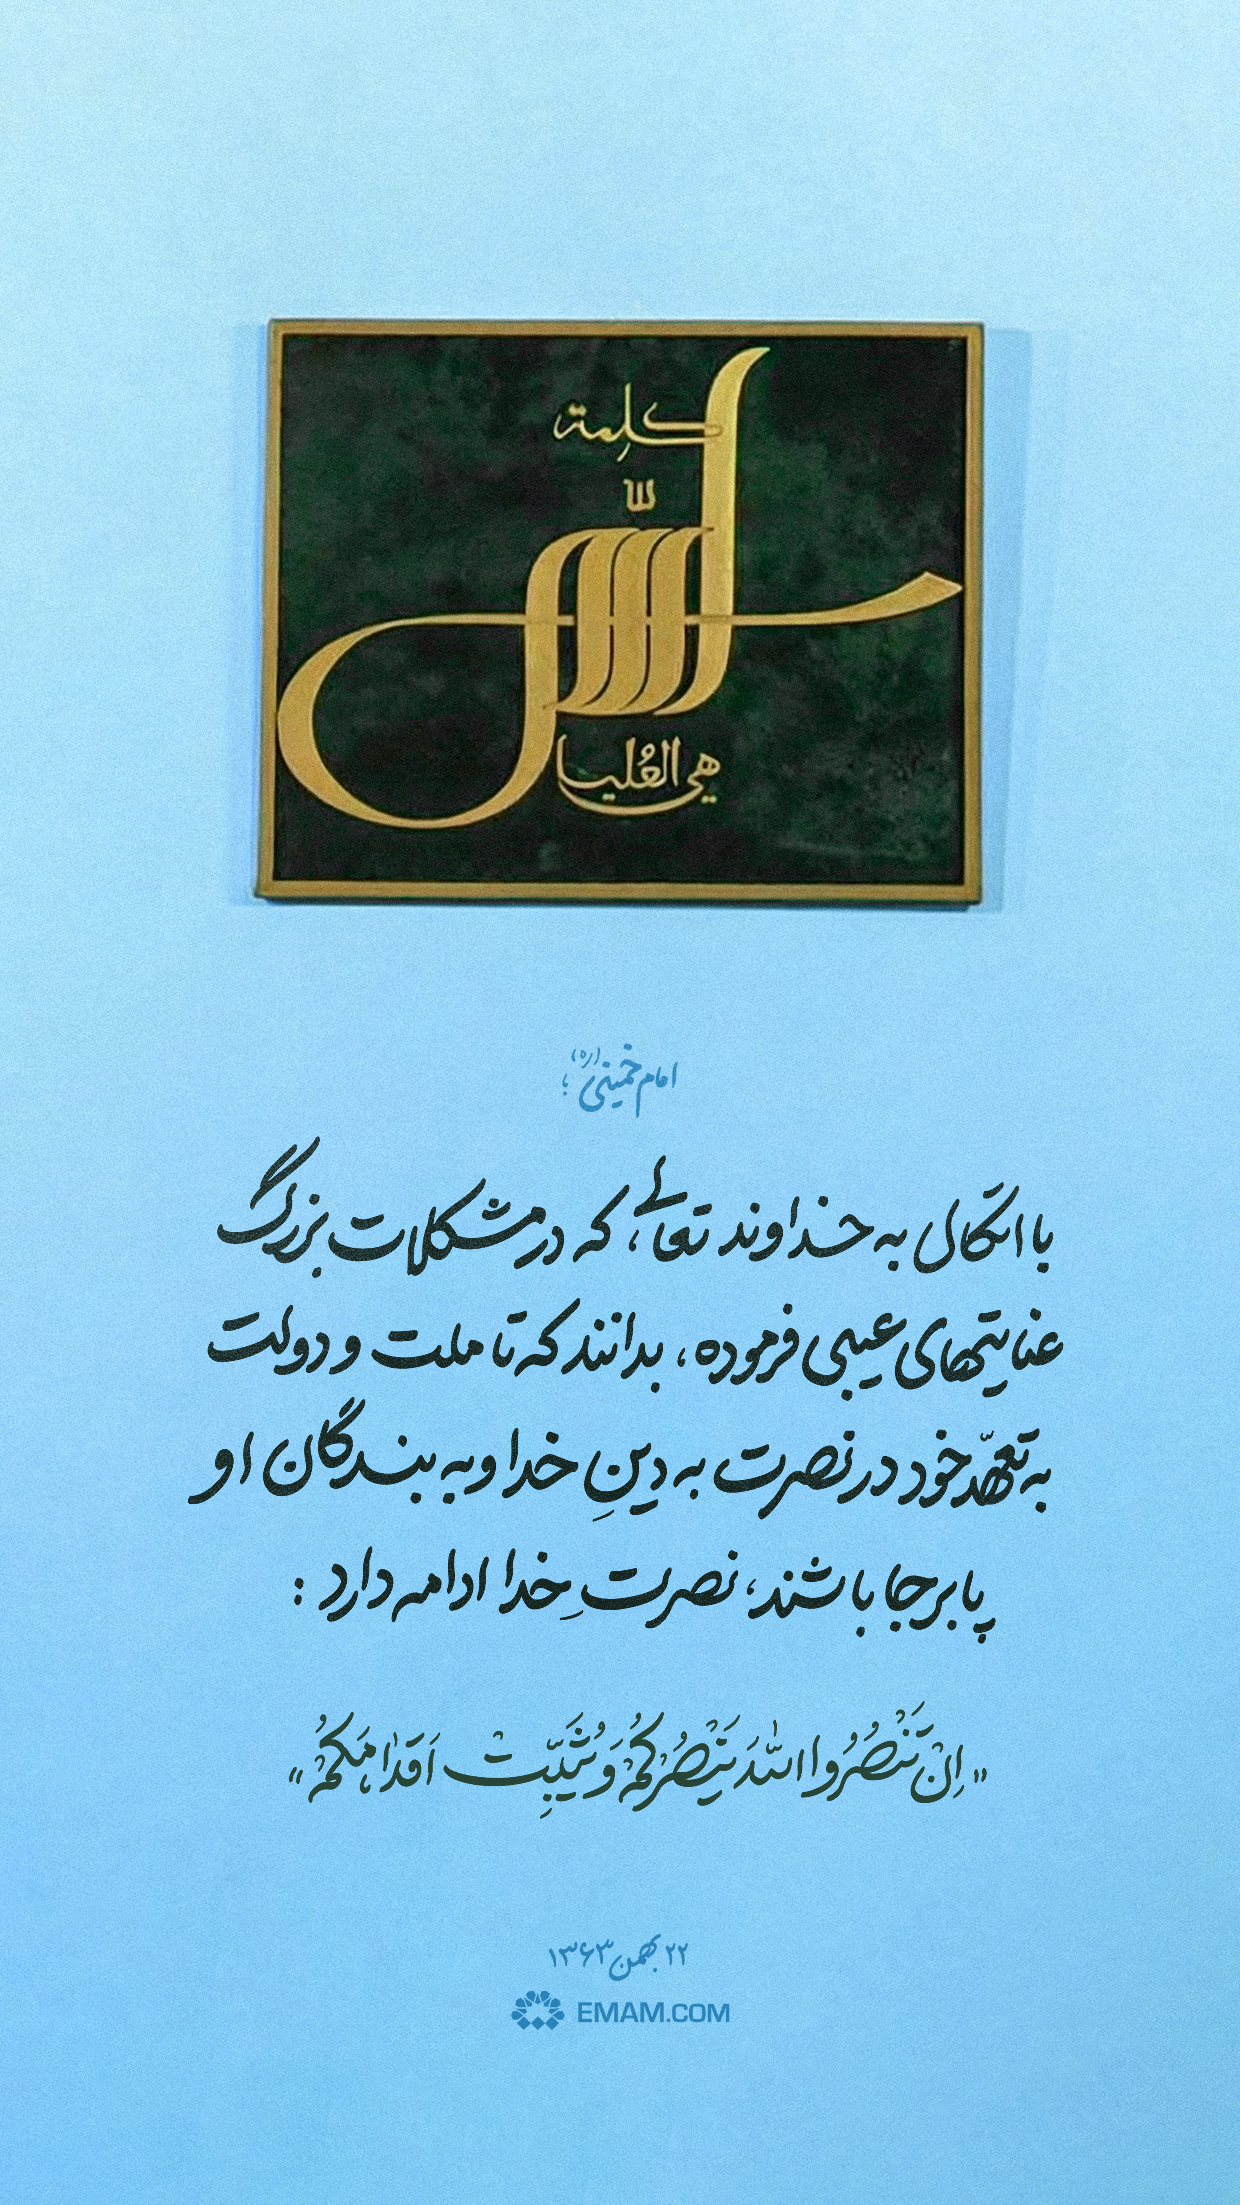 كلمة
الله
هي العُليا
امام خمینی (ره)؛
با اتکال به خداوند تعالی، که در مشکلات بزرگ
عنایتهای غیبی فرموده، بدانند که تا ملت و دولت
به تعهّد خود در نصرت به دینِ خدا و به بندگان او
پابرجا باشند، نصرتِ خدا ادامه دارد :
«اِنْ تَنْصُرُوا اللّٰهَ یَنْصُرْکُمْ وَ یُثَبِّتْ اَقْدٰامَکُمْ»
۲۲ بهمن ۱۳۶۳
EMAM.COM